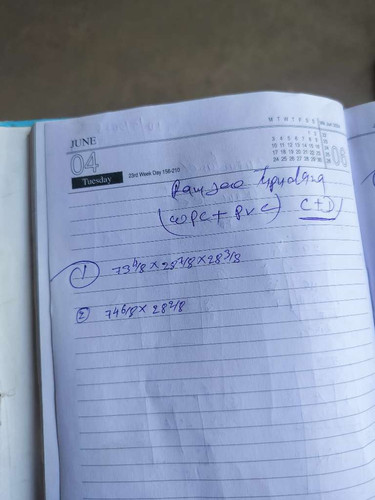 JUNE
04
Tuesday
23rd Week Day 156-210
M T W T F S S
1 2
3 4 5 6 7 8 9
10 11 12 13 14 15 16
17 18 19 20 21 22 23
24 25 26 27 28 29 30
06
(WPC + PVC) C+D
1 73 4/8 × 28 2/8 × 28 3/8
2 74 6/8 × 28 2/8